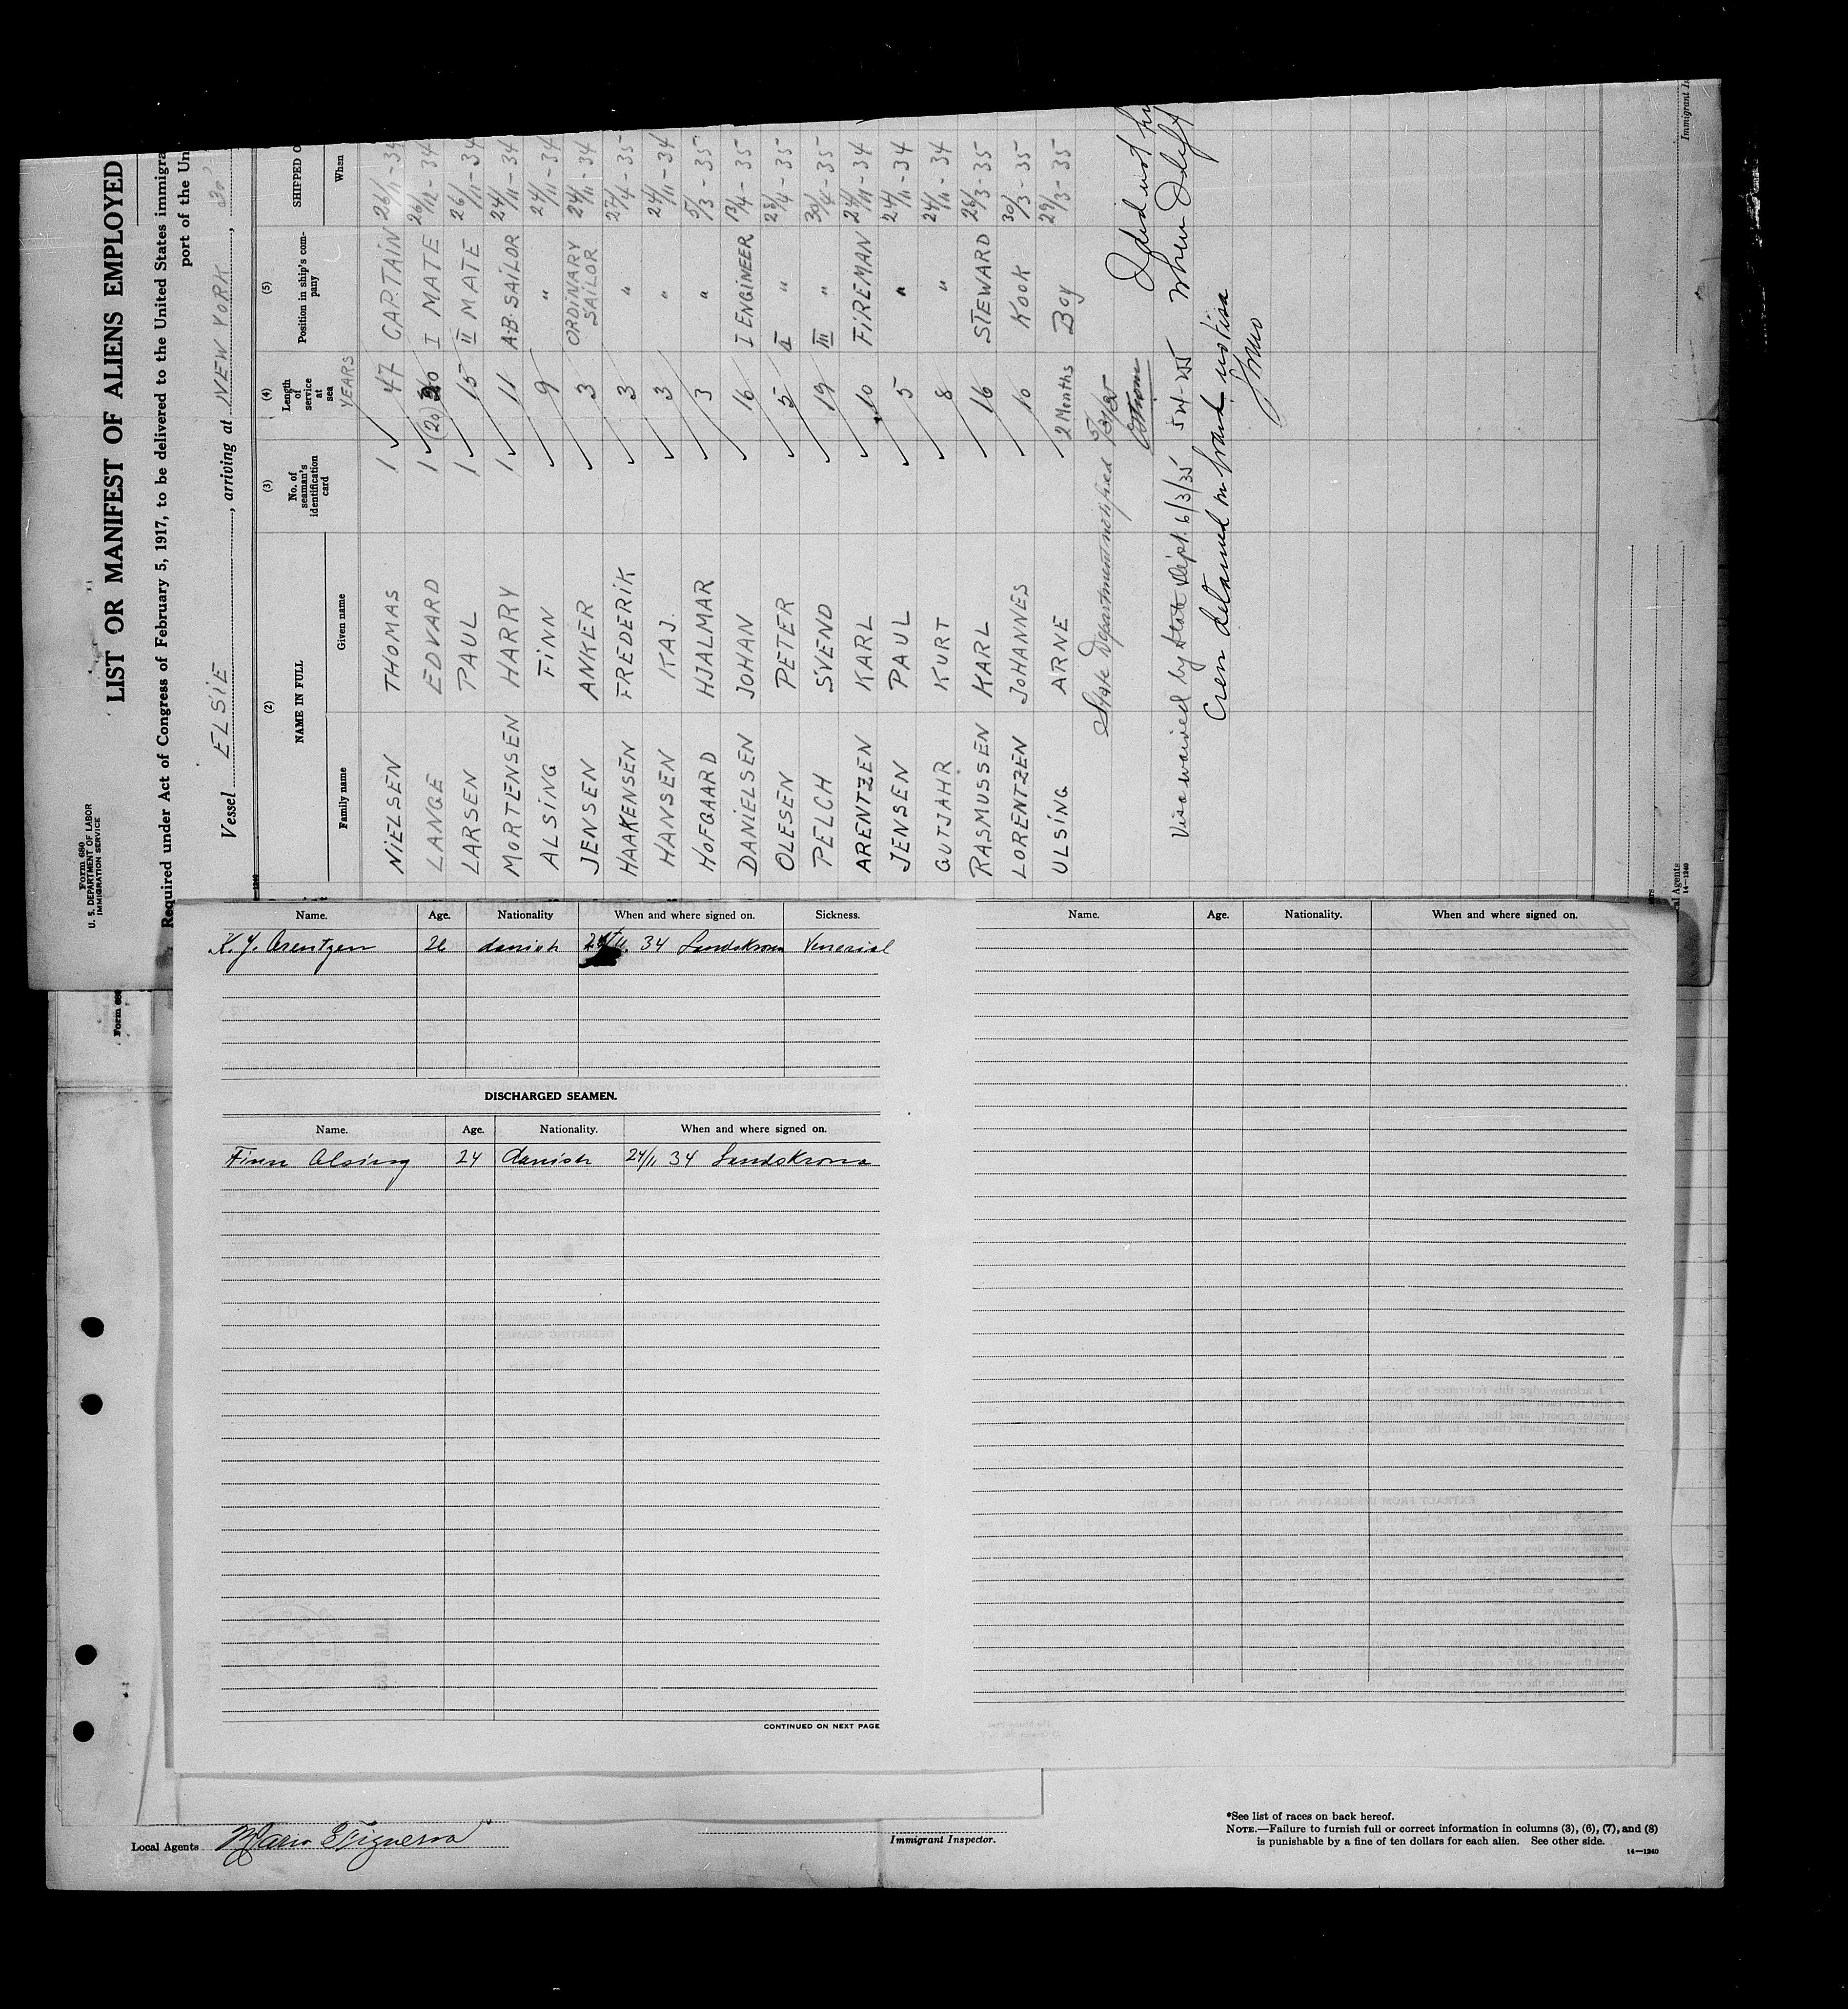 Form 680
U. S. DEPARTMENT OF LABOR
IMMIGRATION SERVICE
LIST OR MANIFEST OF ALIENS EMPLOYED
Required under Act of Congress of February 5, 1917, to be delivered to the United States immigra
port of the Un
Vessel ELSIE, arriving at NEW YORK,
(2) (3) (4) (5)
NAME IN FULL No. of seaman's identification card Length of service at sea Position in ship's com-pany SHIPPED O
Family name Given name YEARS When
NIELSEN THOMAS 1 47 CAPTAIN 26/11-34
LANGE EDVARD 1 (20) I MATE 26/12-34
LARSEN PAUL 1 15 II MATE 26/11-34
MORTENSEN HARRY 1 11 A.B. SAILOR 24/11-34
ALSING FINN 9 " 24/11-34
JENSEN ANKER 3 ORDINARY SAILOR 24/11-34
HAAKENSEN FREDERIK 3 " 27/4-35
HANSEN KAJ. 3 " 24/11-34
HOFGAARD HJALMAR 3 " 5/3-35
DANIELSEN JOHAN 16 I ENGINEER 13/4-35
OLESEN PETER 5 II " 23/4-35
PELCH SVEND 19 III " 30/4-35
ARENTZEN KARL 10 FIREMAN 24/11-34
JENSEN PAUL 5 " 24/11-34
GUTJAHR KURT 8 " 24/11-34
RASMUSSEN KARL 16 STEWARD 26/3-35
LORENTZEN JOHANNES 10 KOOK 30/3-35
ULSING ARNE 2 Months Boy 29/3-35
State Department notified
I did not
Visa waived by State Dept. 6/3/35 when I left
Crew detained on board
Immigrant I
l Agents
14—1240
Form 680
Name. Age. Nationality When and where signed on. Sickness.
K. J. Arentzen 26 danish 24/11. 34 Landskrona Venerial
DISCHARGED SEAMEN.
Name. Age. Nationality. When and where signed on.
Finn Alsing 24 danish 24/11 34 Landskrona
CONTINUED ON NEXT PAGE
Name. Age. Nationality. When and where signed on.
Local Agents
Immigrant Inspector.
*See list of races on back hereof.
NOTE.—Failure to furnish full or correct information in columns (3), (6), (7), and (8)
is punishable by a fine of ten dollars for each alien. See other side.
14—1240